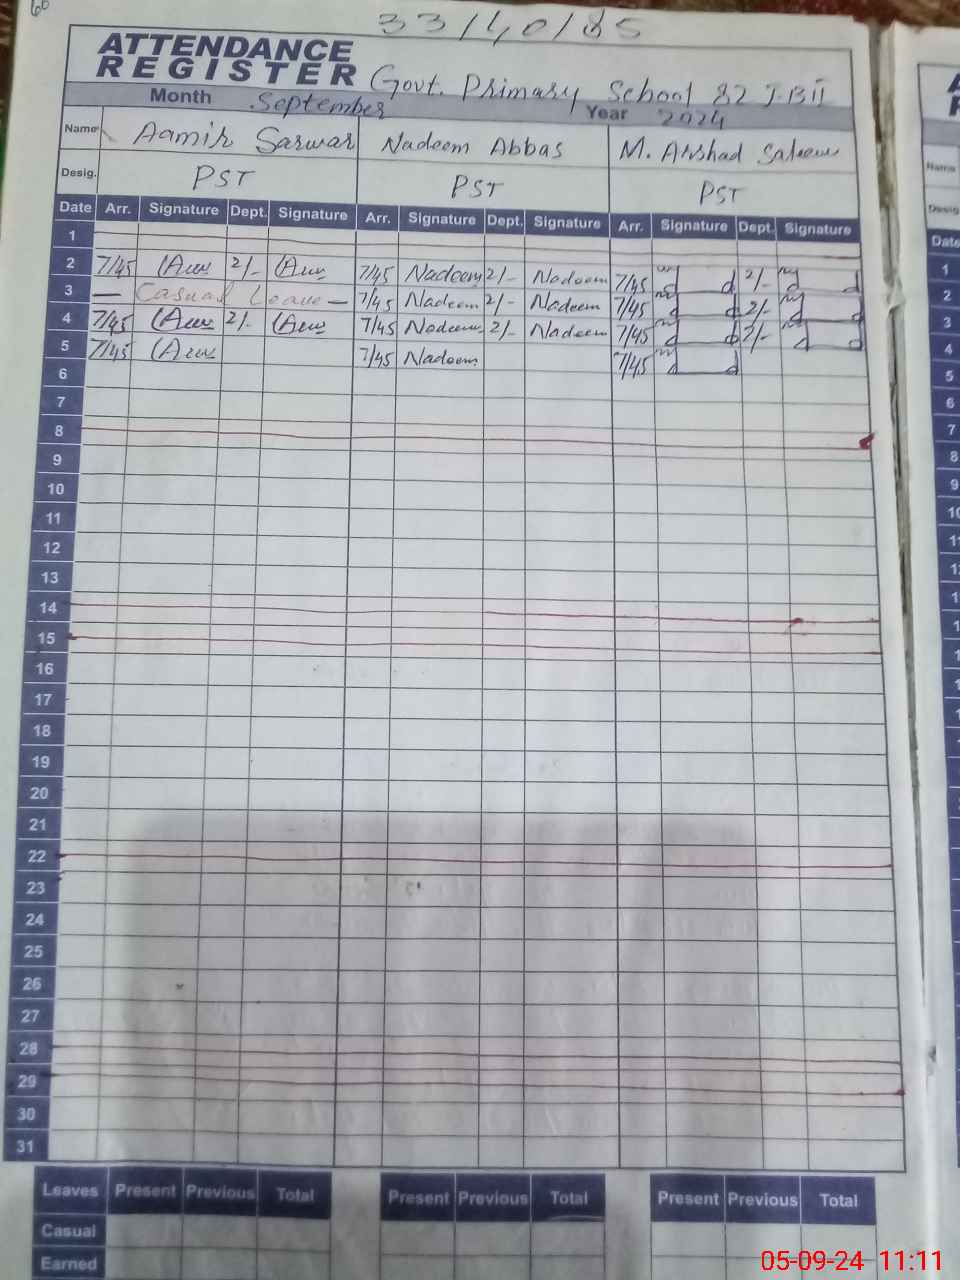 60
33/40/85
ATTENDANCE
REGISTER
Govt. Primary School 82 J.B II
Month September Year 2024
Name Aamir Sarwar Nadeem Abbas M. Arshad Saleem
Desig. PST PST PST
Date Arr. Signature Dept. Signature Arr. Signature Dept. Signature Arr. Signature Dept. Signature
1
2 7/45 2/- 7/45 Nadeem 2/- Nadeem 7/45 2/-
3 — Casual Leave — 7/45 Nadeem 2/- Nadeem 7/45 2/-
4 7/45 2/- 7/45 Nadeem 2/- Nadeem 7/45 2/-
5 7/45 7/45 Nadeem 7/45
6
7
8
9
10
11
12
13
14
15
16
17
18
19
20
21
22
23
24
25
26
27
28
29
30
31
Leaves Present Previous Total Present Previous Total Present Previous Total
Casual
Earned
Name
Desig
Date
1
2
3
4
5
6
7
8
9
05-09-24 11:11